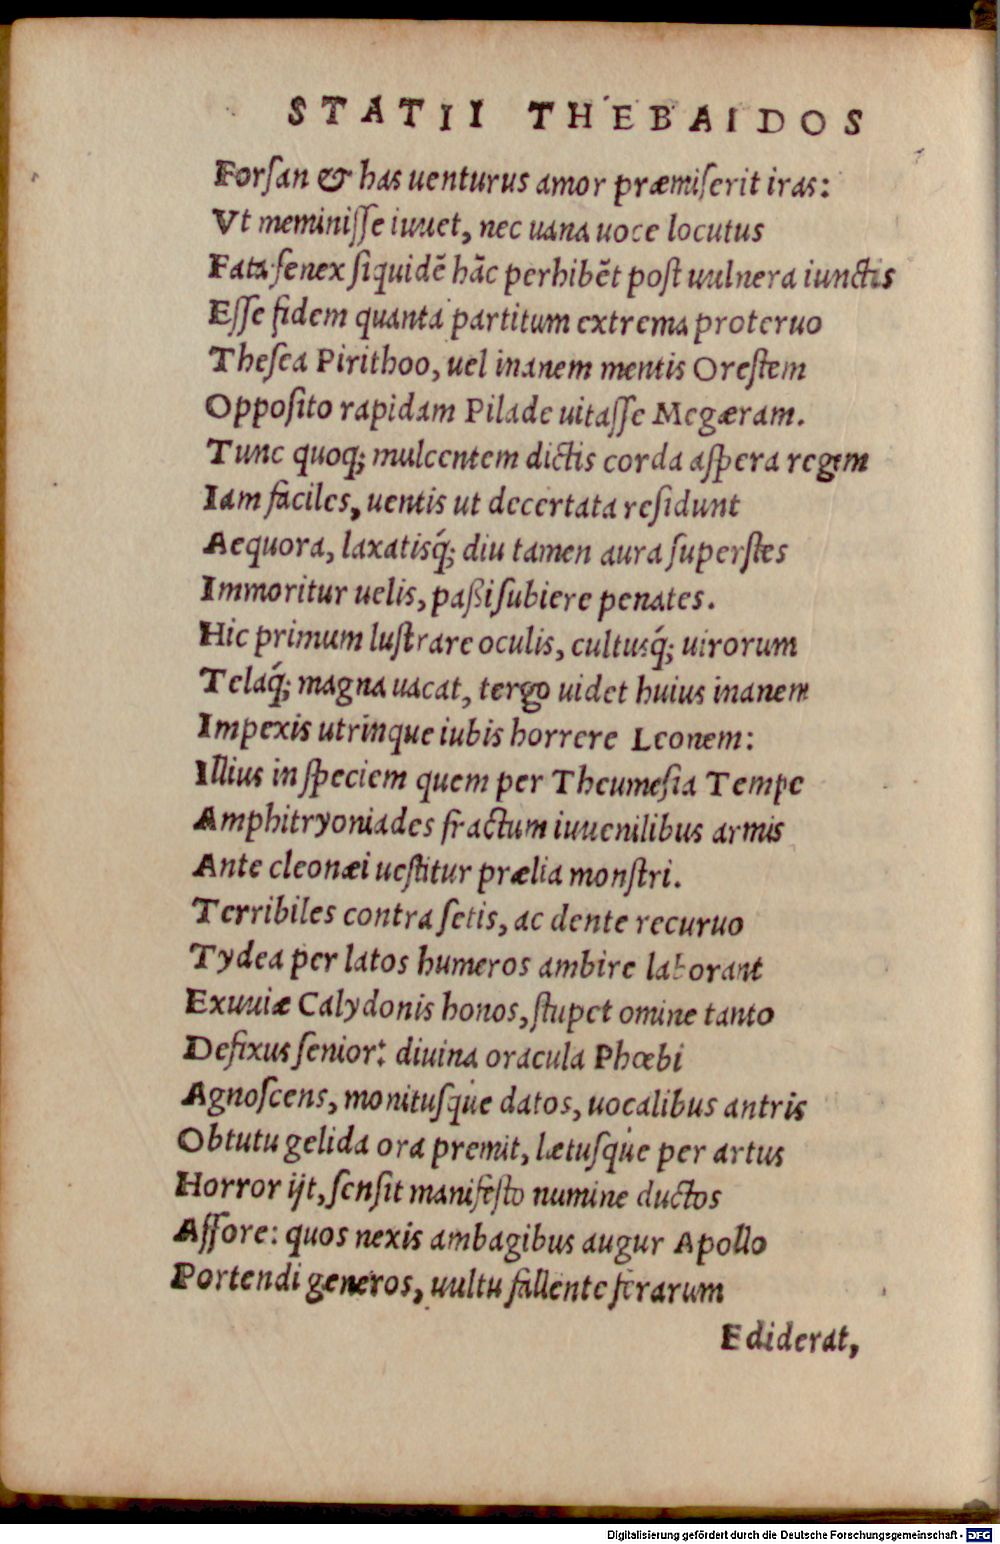 STATII THEBAIDOS
Forſan & has uenturus amor præmiſerit iras:
Vt meminiſſe iuuet, nec uana uoce locutus
Fata ſenex ſiquidē hāc perhibēt poſt uulnera iunctis
Eſſe fidem quanta partitum extrema proteruo
Theſea Pirithoo, uel inanem mentis Oreſtem
Oppoſito rapidam Pilade uitaſſe Megæram.
Tunc quoq; mulcentem dictis corda aſpera regem
Iam faciles, uentis ut decertata reſidunt
Aequora, laxatisq́; diu tamen aura ſuperſtes
Immoritur uelis, paßi ſubiere penates.
Hic primum luſtrare oculis, cultusq́; uirorum
Telaq́; magna uacat, tergo uidet huius inanem
Impexis utrinque iubis horrere Leonem:
Illius in ſpeciem quem per Theumeſia Tempe
Amphitryoniades fractum iuuenilibus armis
Ante cleonæi ueſtitur prælia monſtri.
Terribiles contra ſetis, ac dente recuruo
Tydea per latos humeros ambire laborant
Exuuiæ Calydonis honos, ſtupet omine tanto
Defixus ſenior: diuina oracula Phœbi
Agnoſcens, monituſque datos, uocalibus antris
Obtutu gelida ora premit, lætuſque per artus
Horror ijt, ſenſit manifeſto numine ductos
Affore: quos nexis ambagibus augur Apollo
Portendi generos, uultu fallente ferarum
Ediderat,
Digitalisierung gefördert durch die Deutsche Forschungsgemeinschaft - DFG